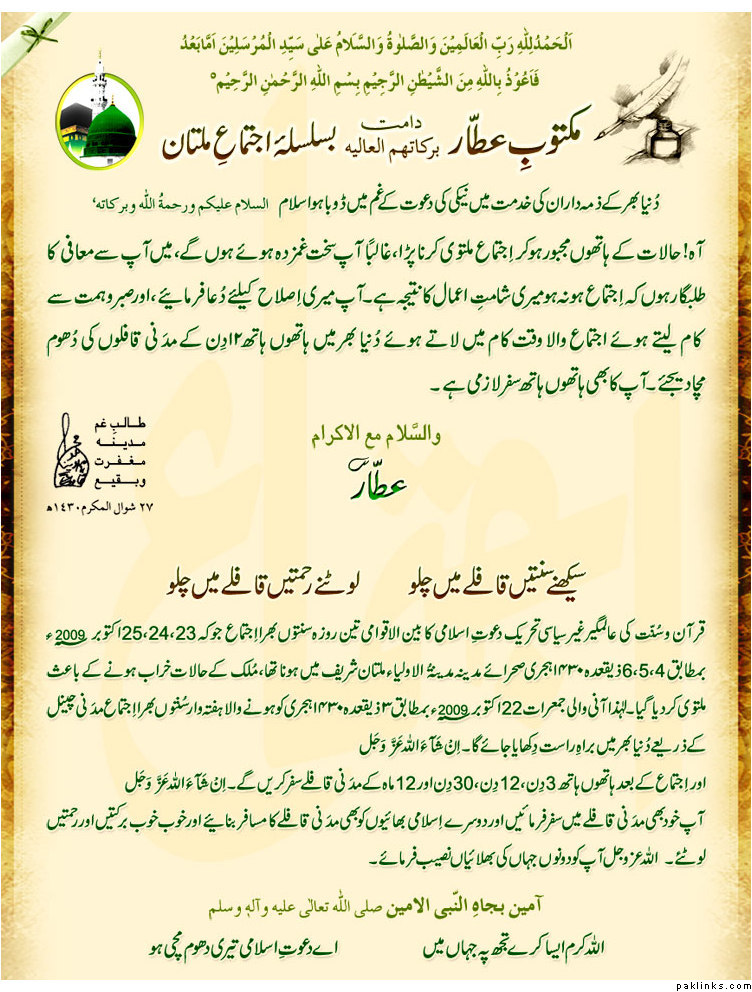 اَلْحَمْدُلِلّٰهِ رَبِّ الْعَالَمِیْنَ وَالصَّلٰوةُ وَالسَّلَامُ عَلٰی سَیِّدِ الْمُرْسَلِیْنَ اَمَّابَعْدُ
فَاَعُوْذُ بِاللّٰهِ مِنَ الشَّیْطٰنِ الرَّجِیْمِ بِسْمِ اللّٰهِ الرَّحْمٰنِ الرَّحِیْمِ ؕ
مکتوبِ عطّار دامت برکاتہم العالیہ بسلسلۂ اجتماعِ ملتان
دُنیا بھر کے ذمہ داران کی خدمت میں نیکی کی دعوت کے غم میں ڈوبا ہوا سلام السلام علیکم ورحمۃُ اللہ وبرکاتہ،
آہ! حالات کے ہاتھوں مجبور ہو کر اِجتماع ملتوی کرنا پڑا، غالبًا آپ سخت غمزدہ ہوئے ہوں گے، میں آپ سے معافی کا
طلبگار ہوں کہ اِجتماع ہونہ ہو میری شامتِ اعمال کا نتیجہ ہے۔ آپ میری اِصلاح کیلئے دُعا فرمائیے، اور صبر وہمت سے
کام لیتے ہوئے اجتماع والا وقت کام میں لاتے ہوئے دُنیا بھر میں ہاتھوں ہاتھ ۱۲ دِن کے مدَنی قافلوں کی دُھوم
مچا دیجئے۔ آپ کا بھی ہاتھوں ہاتھ سفر لازمی ہے ۔
والسَّلام مع الاکرام
عطّار
طالبِ غم
مدینہ
مغفرت
وبقیع
۲۷ شوال المکرم ۱۴۳۰ھ
سیکھنے سنتیں قافلے میں چلو لوٹنے رحمتیں قافلے میں چلو
قرآن و سُنّت کی عالمگیر غیر سیاسی تحریک دعوتِ اسلامی کا بین الاقوامی تین روزہ سنتوں بھرا اِجتماع جو کہ 23، 24، 25 اکتوبر 2009ء
بمطابق 4، 5، 6 ذیقعدہ ۱۴۳۰ ہجری صحرائے مدینہ مدینۃ الاولیاء ملتان شریف میں ہونا تھا، مُلک کے حالات خراب ہونے کے باعث
ملتوی کر دیا گیا۔ لہٰذا آنی والی جمعرات 22 اکتوبر 2009ء بمطابق ۳ ذیقعدہ ۱۴۳۰ ہجری کو ہونے والا ہفتہ وار سُنّتوں بھرا اِجتماع مدَنی چینل
کے ذریعے دُنیا بھر میں براہِ راست دِکھایا جائے گا۔ اِنْ شَآءَ اللہ عَزَّ وَجَل
اور اِجتماع کے بعد ہاتھوں ہاتھ 3 دِن، 12 دِن، 30 دِن اور 12 ماہ کے مدَنی قافلے سفر کریں گے۔ اِنْ شَآءَ اللہ عَزَّ وَجَل
آپ خود بھی مدَنی قافلے میں سفر فرمائیں اور دوسرے اِسلامی بھائیوں کو بھی مدَنی قافلے کا مسافر بنائیے اور خوب خوب برکتیں اور رحمتیں
لوٹئے۔ اللہ عزوجل آپ کو دونوں جہاں کی بھلائیاں نصیب فرمائے۔
آمین بجاہِ النّبی الامین صلی اللہ تعالٰی علیہ وآلہٖ وسلم
اللہ کرم ایسا کرے تجھ پہ جہاں میں اے دعوتِ اسلامی تیری دھوم مچی ہو
paklinks.com